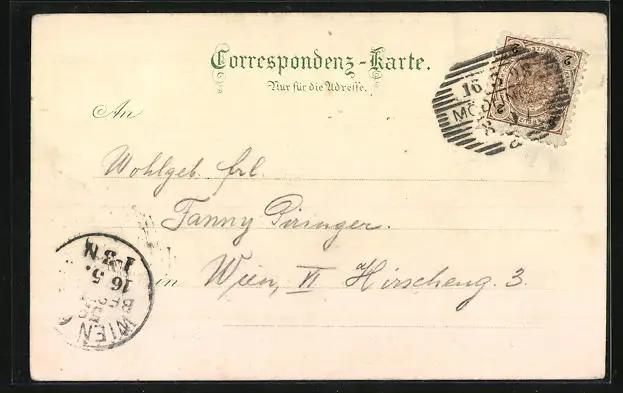 Correspondenz-Karte.
Nur für die Adresse.
16
MÖD
2
2
An
Wohlgeb. frl.
Fanny Piringer.
in Wien, VI Hirscheng. 3.
1-3 N
16 5.
BEST
WIEN